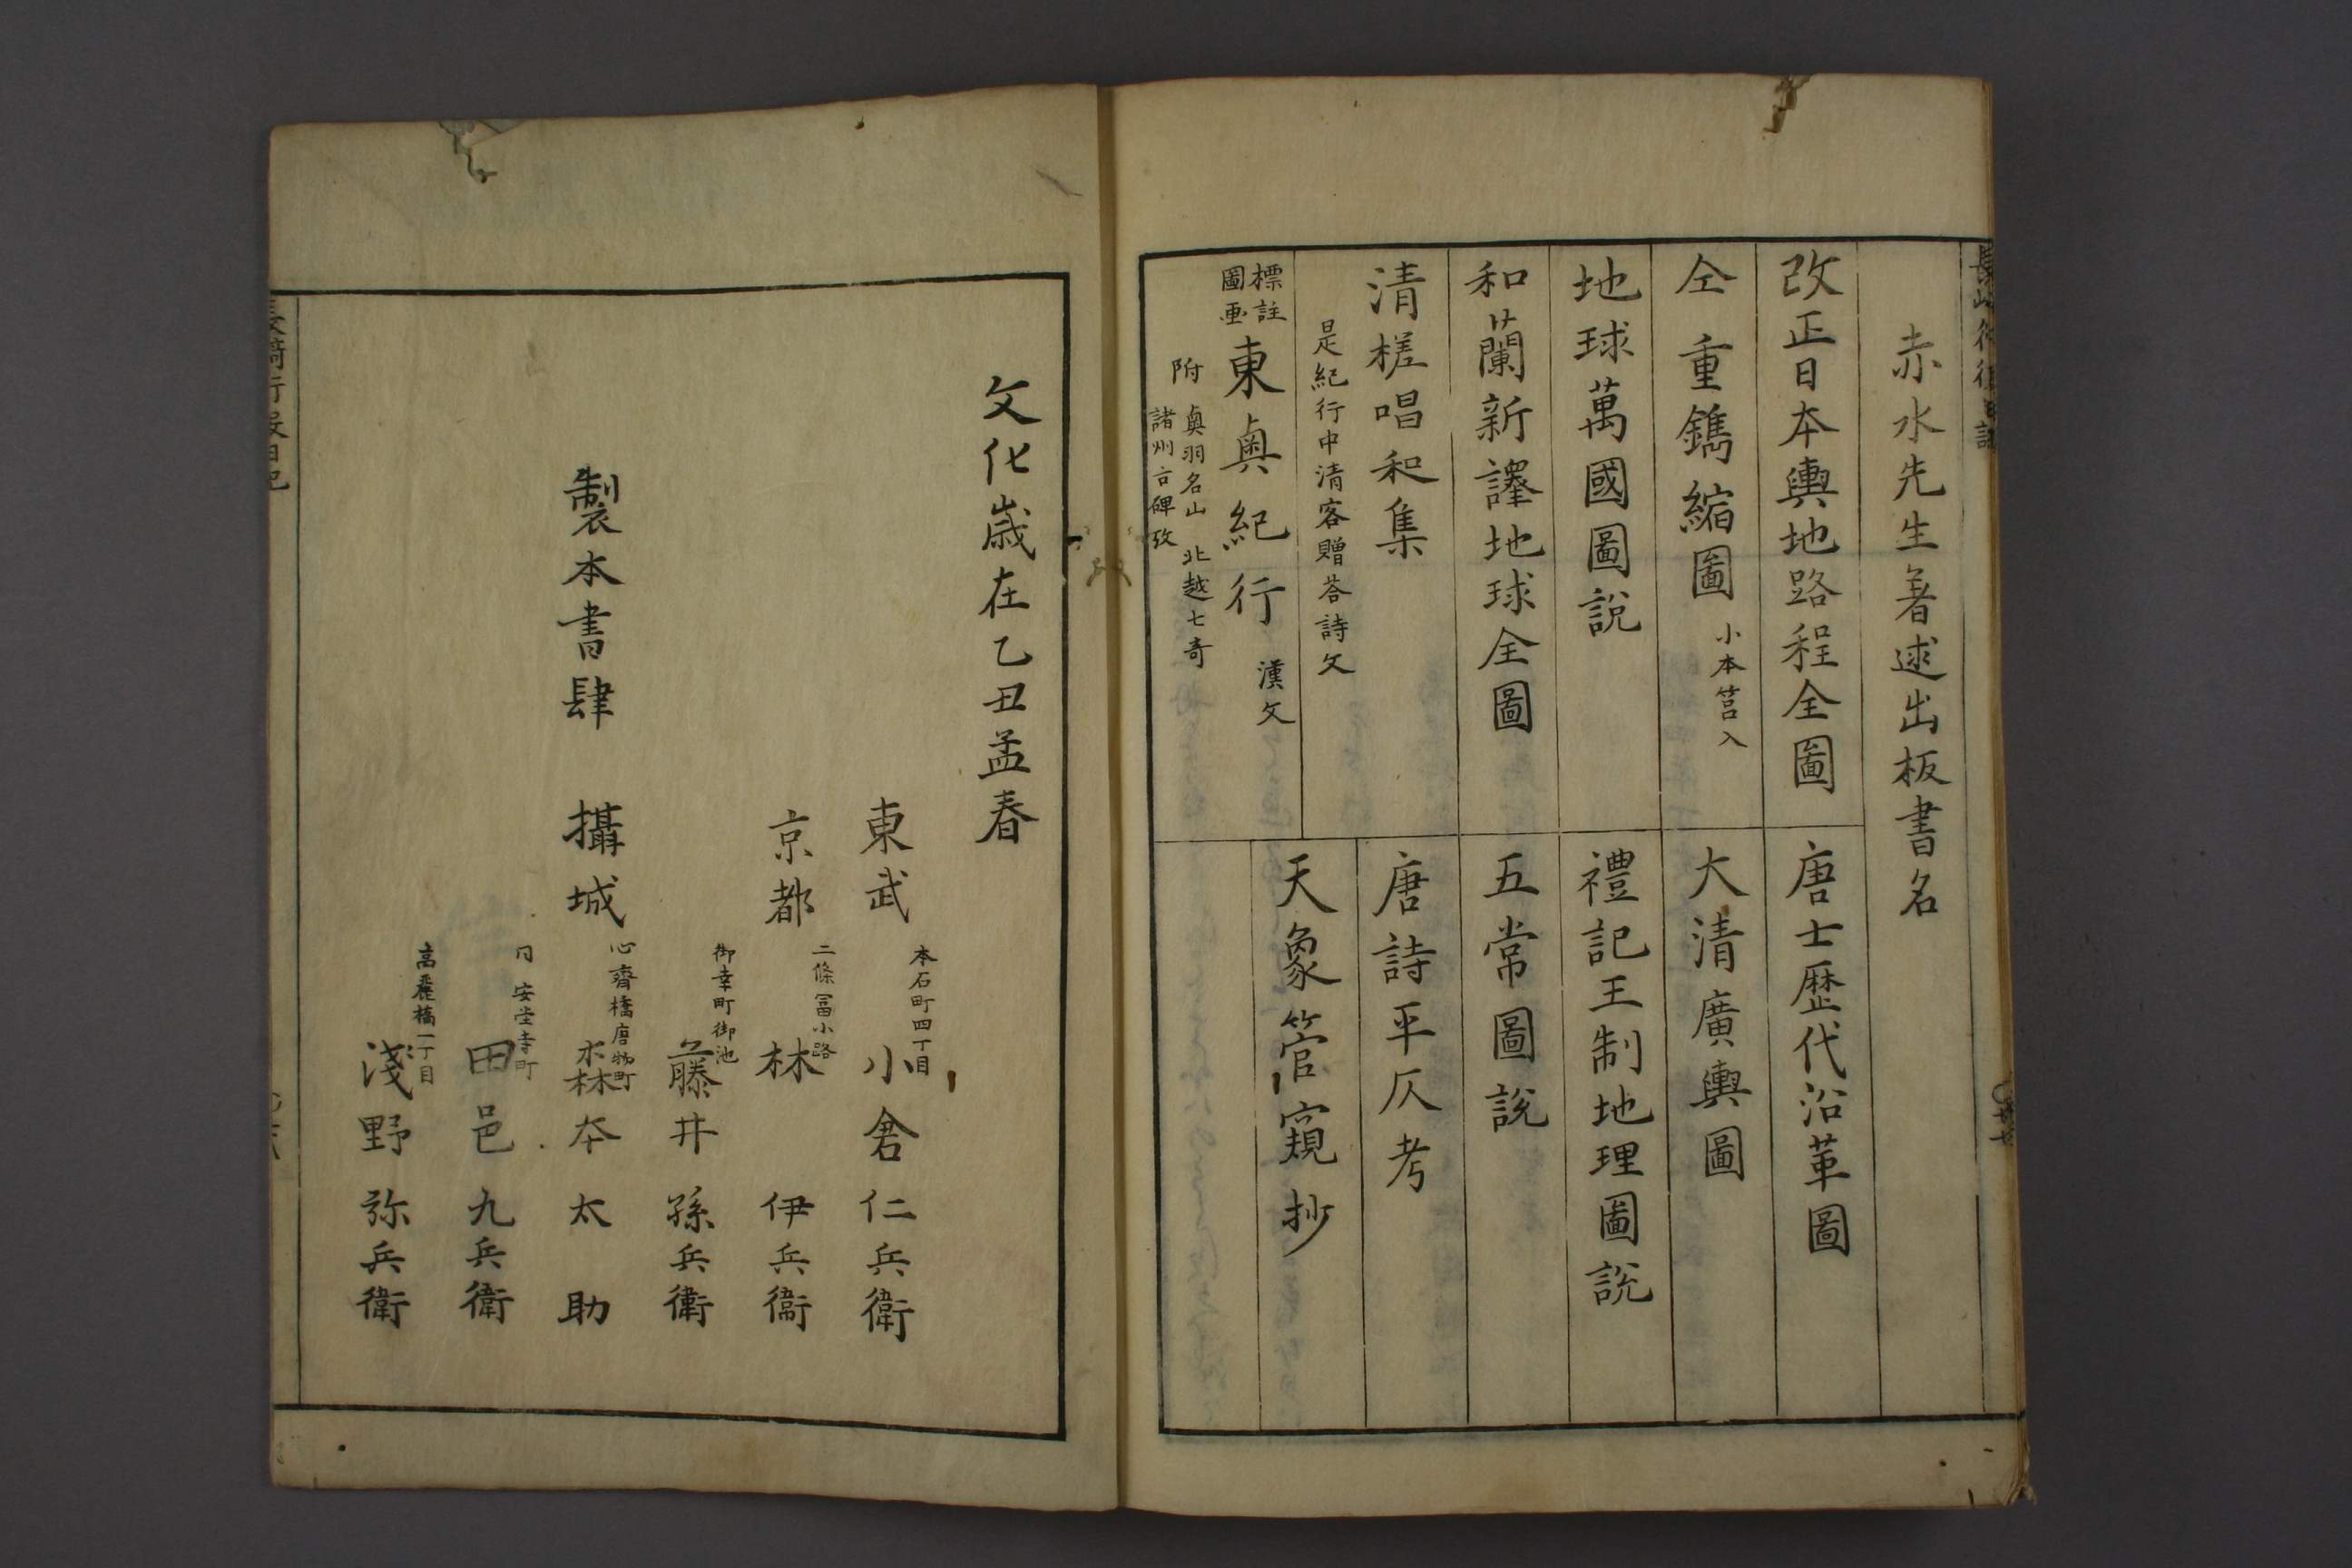 赤水先生著述出板書名
改正日本輿地路程全圖
仝 重鐫縮圖 小本筥入
地球萬國圖說
和蘭新譯地球全圖
清槎唱和集
是紀行中清客贈荅詩文
標註
圖画
東奧紀行 漢文
附 奧羽名山 北越七奇
諸州古碑攷
唐士歷代沿革圖
大清廣輿圖
禮記王制地理圖說
五常圖說
唐詩平仄考
天象管窺抄
文化歳在乙丑孟春
東武 本石町四丁目 小倉仁兵衛
京都 二條冨小路 林 伊兵衞
御幸町御池 藤井孫兵衛
製本書肆 攝城 心齋橋唐物町 森本太助
同 安堂寺町 田邑九兵衛
高麗橋一丁目 淺野弥兵衛
長崎行役日記